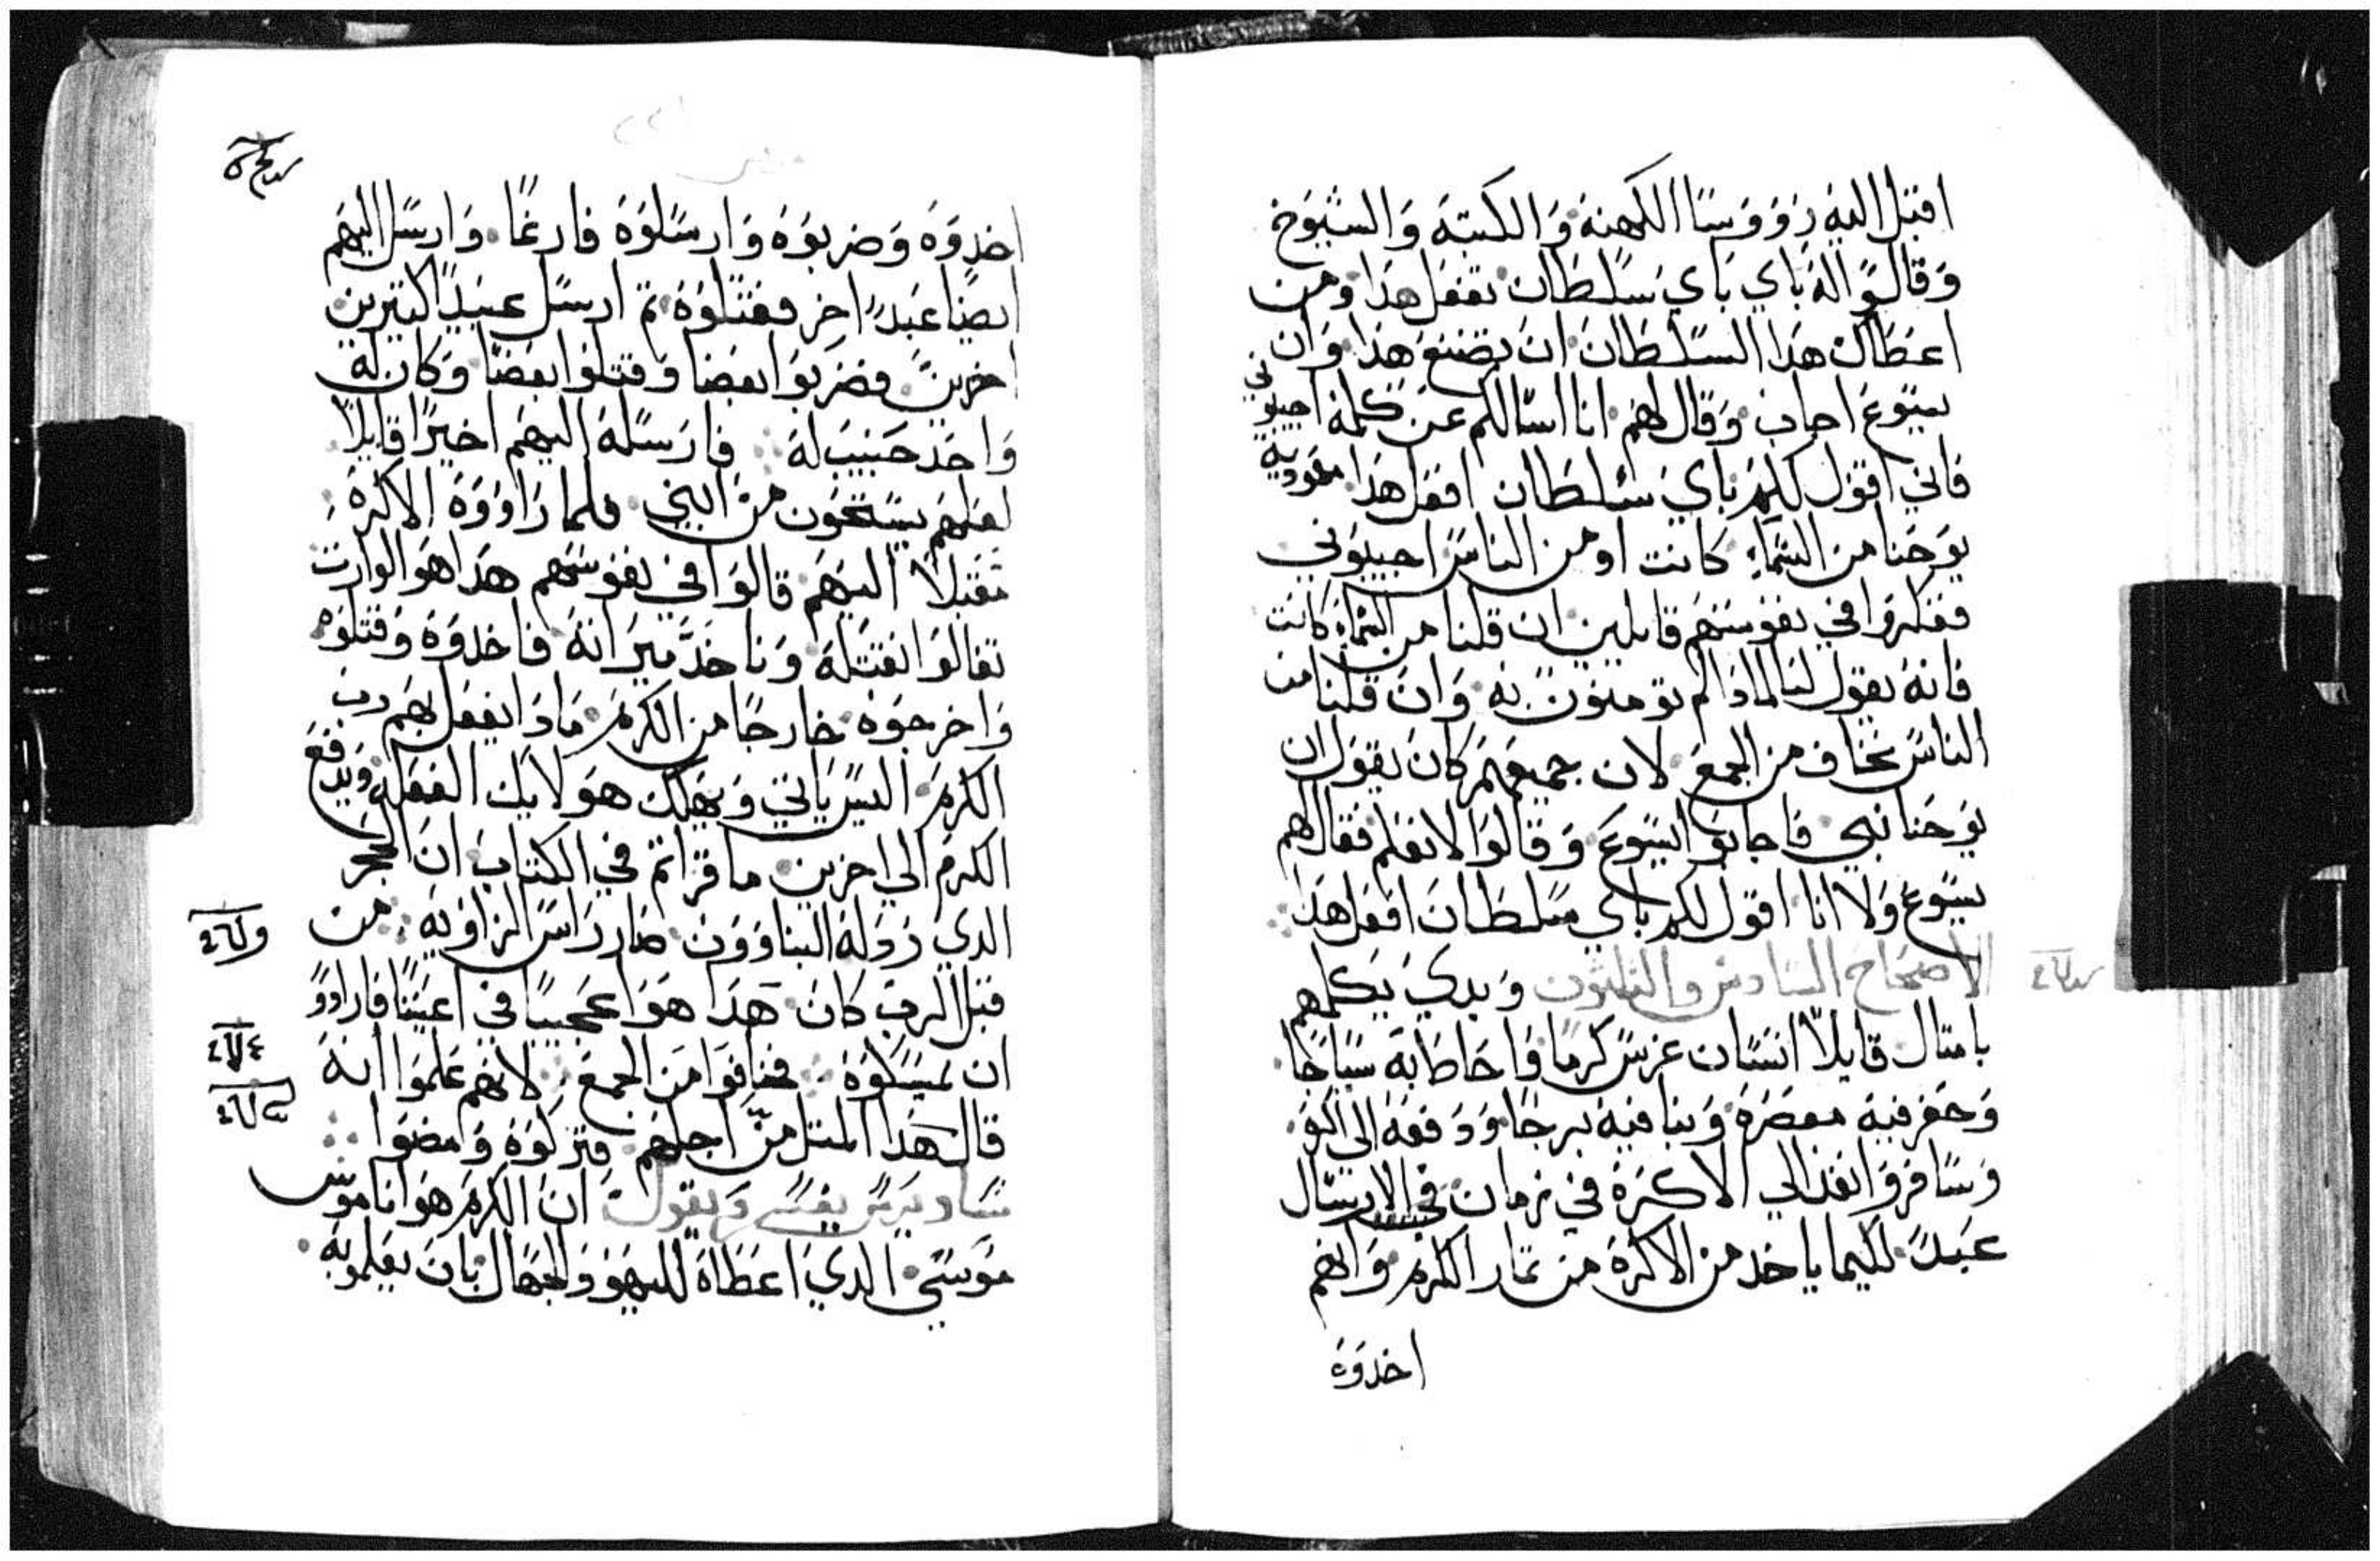 اقبل اليه رووسا الكهنة والكتبة والشيوخ
وقالوا له باي باي سلطان تفعل هذا ومن
اعطاك هذا السلطان ان تصنع هذا وان
يسوع اجاب وقال لهم انا اسالكم عن كلمة اجيبوني
فاني اقول لكم باي سلطان افعل هذا معمودية
يوحنا من السماء كانت او من الناس اجيبوني
ففكروا في نفوسهم قايلين ان قلنا من السماء كانت
فانه يقول لنا لماذا لم تومنون به وان قلنا من
الناس نخاف من الجمع لان جميعهم كان يقول ان
يوحنا نبي فاجابوا ليسوع وقالوا لا نعلم فقال لهم
يسوع ولا انا اقول لكم باي سلطان افعل هذا
الاصحاح السادس والثلثون وبدي يكلمهم
بامتال قايلا انسان غرس كرما واحاط به سياجا
وحفر فيه معصرة وبنا فيه برجا ودفعه الي
وسافر وانفذ الي الاكرة في زمان الارسال
عبد لكيما ياخد من الاكرة من تمار الكرم وانهم
اخدوه
اخدوه وضربوه وارسلوه فارغا وارسل اليهم
ايضا عبد اخر فقتلوه تم ارسل عبيد اكتيرين
اخرين فضربوا بعضا وقتلوا بعضا وكان له
واحد حبيب له فارسله اليهم اخيرا قايلا
لعلهم يستحون من ابني فلما راووه الاكرة
مقبلا اليهم قالوا في نفوسهم هدا هو الوارت
تعالوا نقتله وناخد ميراته فاخدوه وقتلوه
واخرجوه خارجا من الكرم مادا يفعل بهم رب
الكرم اليس ياتي ويهلك هولايك الفعله ويدفع
الكرم الي اخرين ما قراتم في الكتاب ان الحجر
الدي ردله البناوون صار راس الزاويه من
قبل الرب كان هدا هوا عجيبا في اعيننا فارادو
ان يمسكوه فخافوا من الجمع لانهم علموا انه
قال هدا المتل من اجلهم فتركوه وامضوا
ويقول ان الكرم هوا ناموس
موسي الدي اعطاه لليهود بان يعلمو به